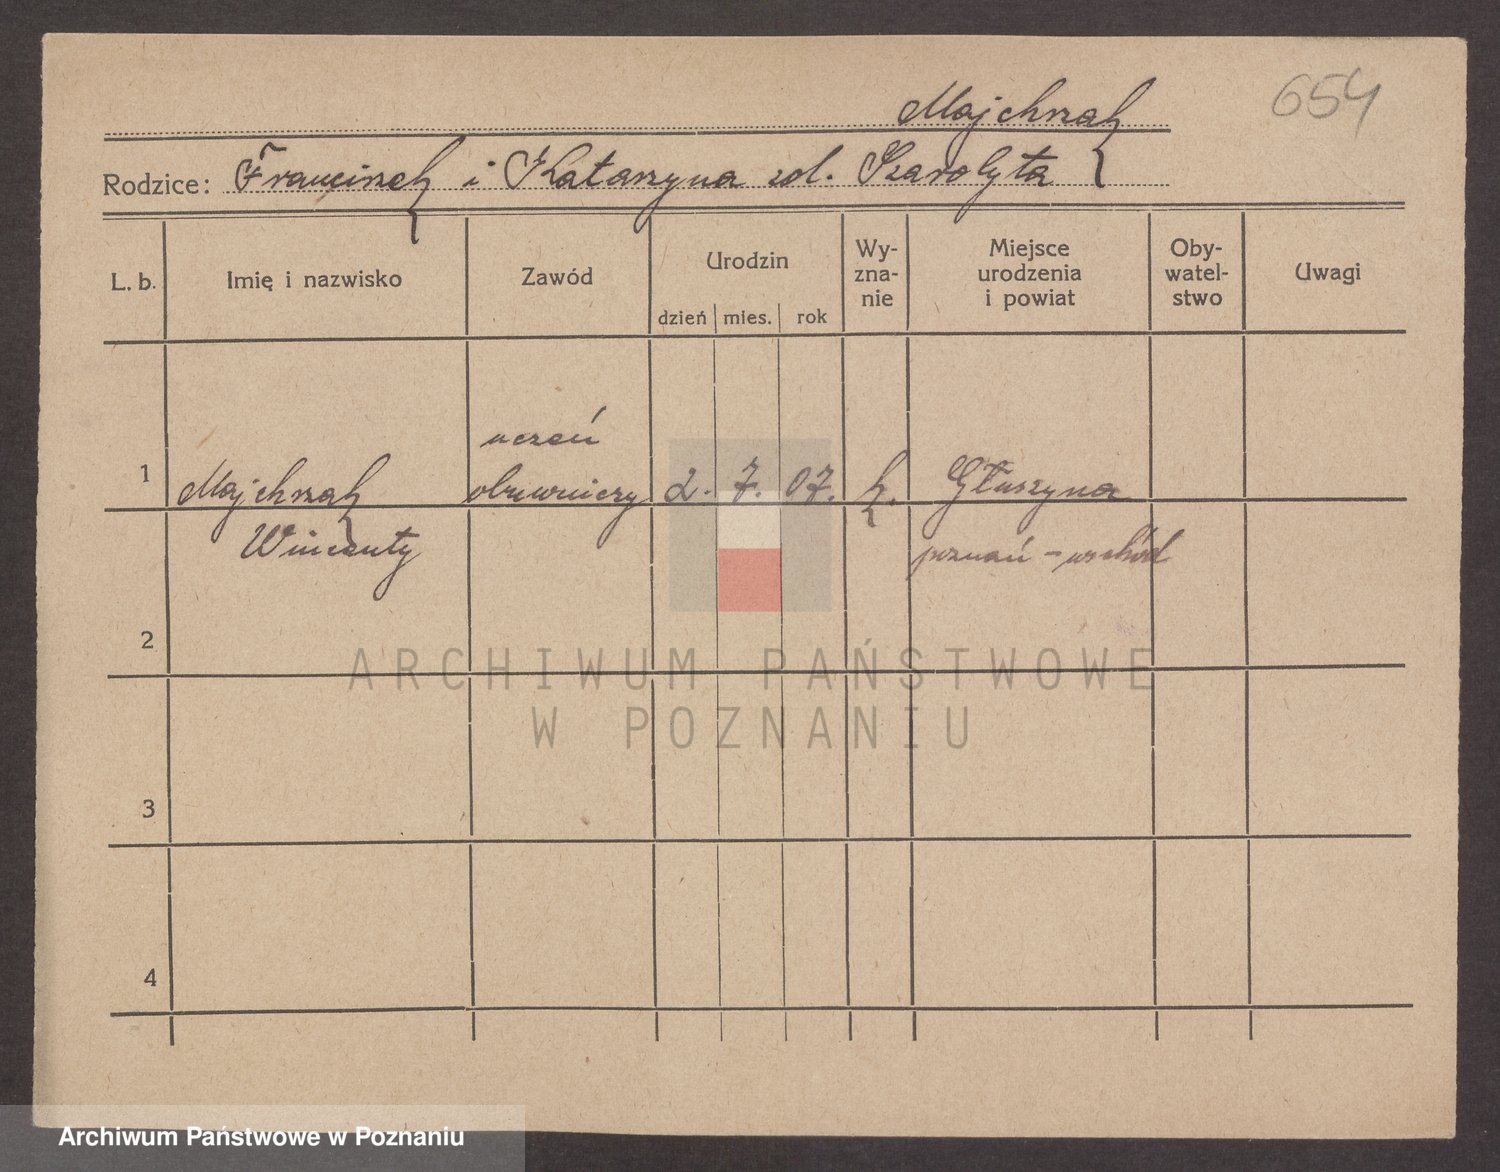 654
Majchrzak
Rodzice: Franciszek i Katarzyna zd. Szarolyta
L. b.
Imię i nazwisko
Zawód
Urodzin
dzień mies. rok
Wy-
zna-
nie
Miejsce
urodzenia
i powiat
Oby-
watel-
stwo
Uwagi
uczeń
1 Majchrzak obuwniczy 2. 7. 07. k. Głuszyna
Wincenty poznań - wschód
2
3
4
ARCHIWUM PAŃSTWOWE
W POZNANIU
Archiwum Państwowe w Poznaniu